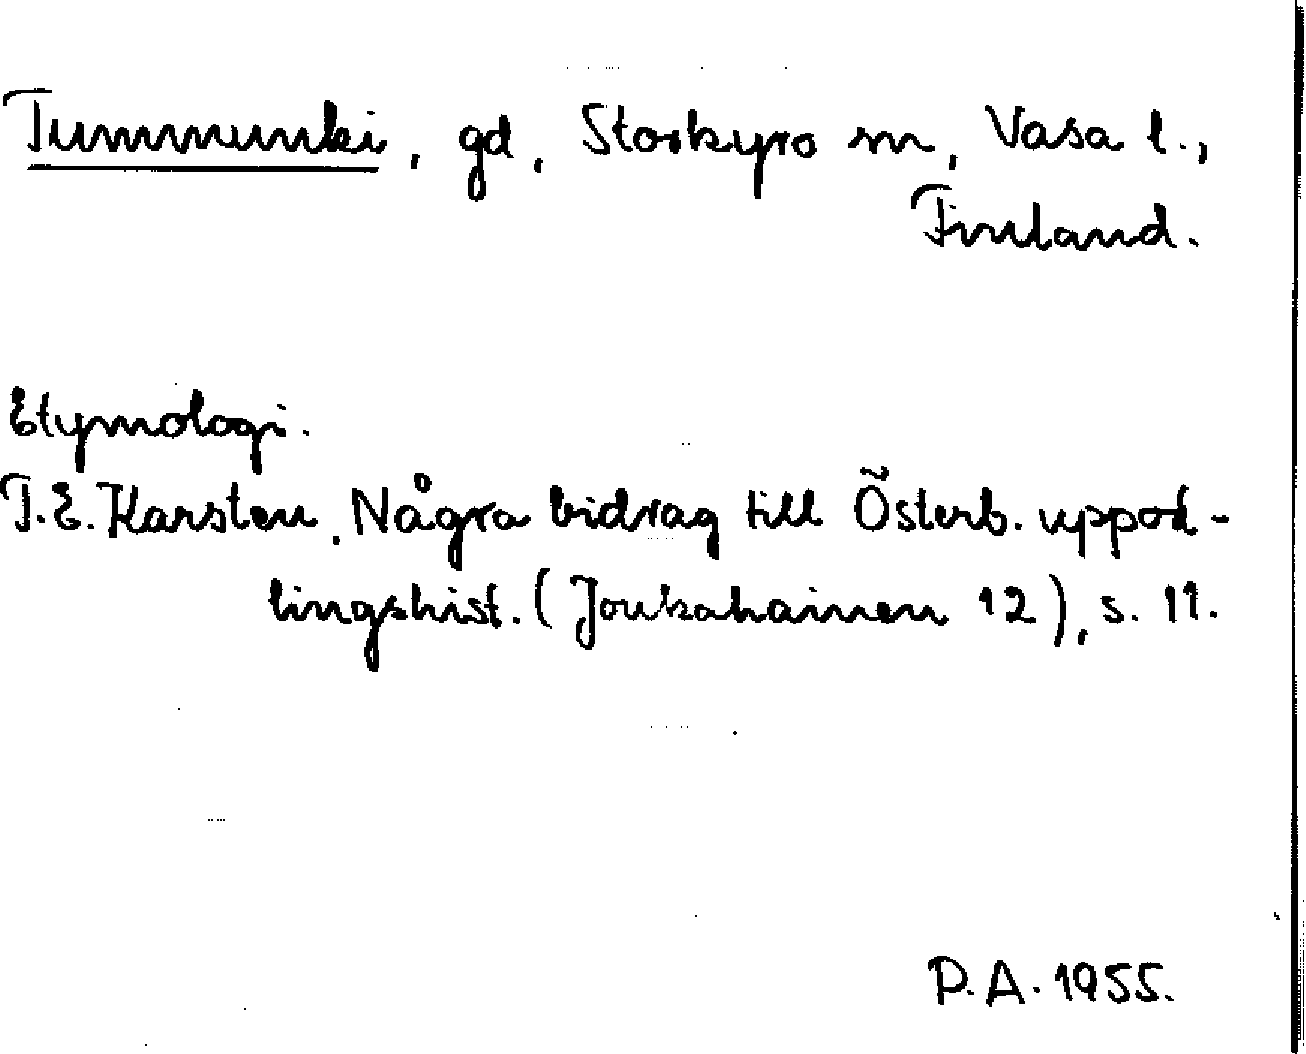 Tummunki, gd, Storkyro sn, Vasa l.,
Finland.
Etymologi.
T.E. Karsten, Några bidrag till Österb. uppod-
lingshist. (Joukahainen 12), s. 11.
P.A. 1955.